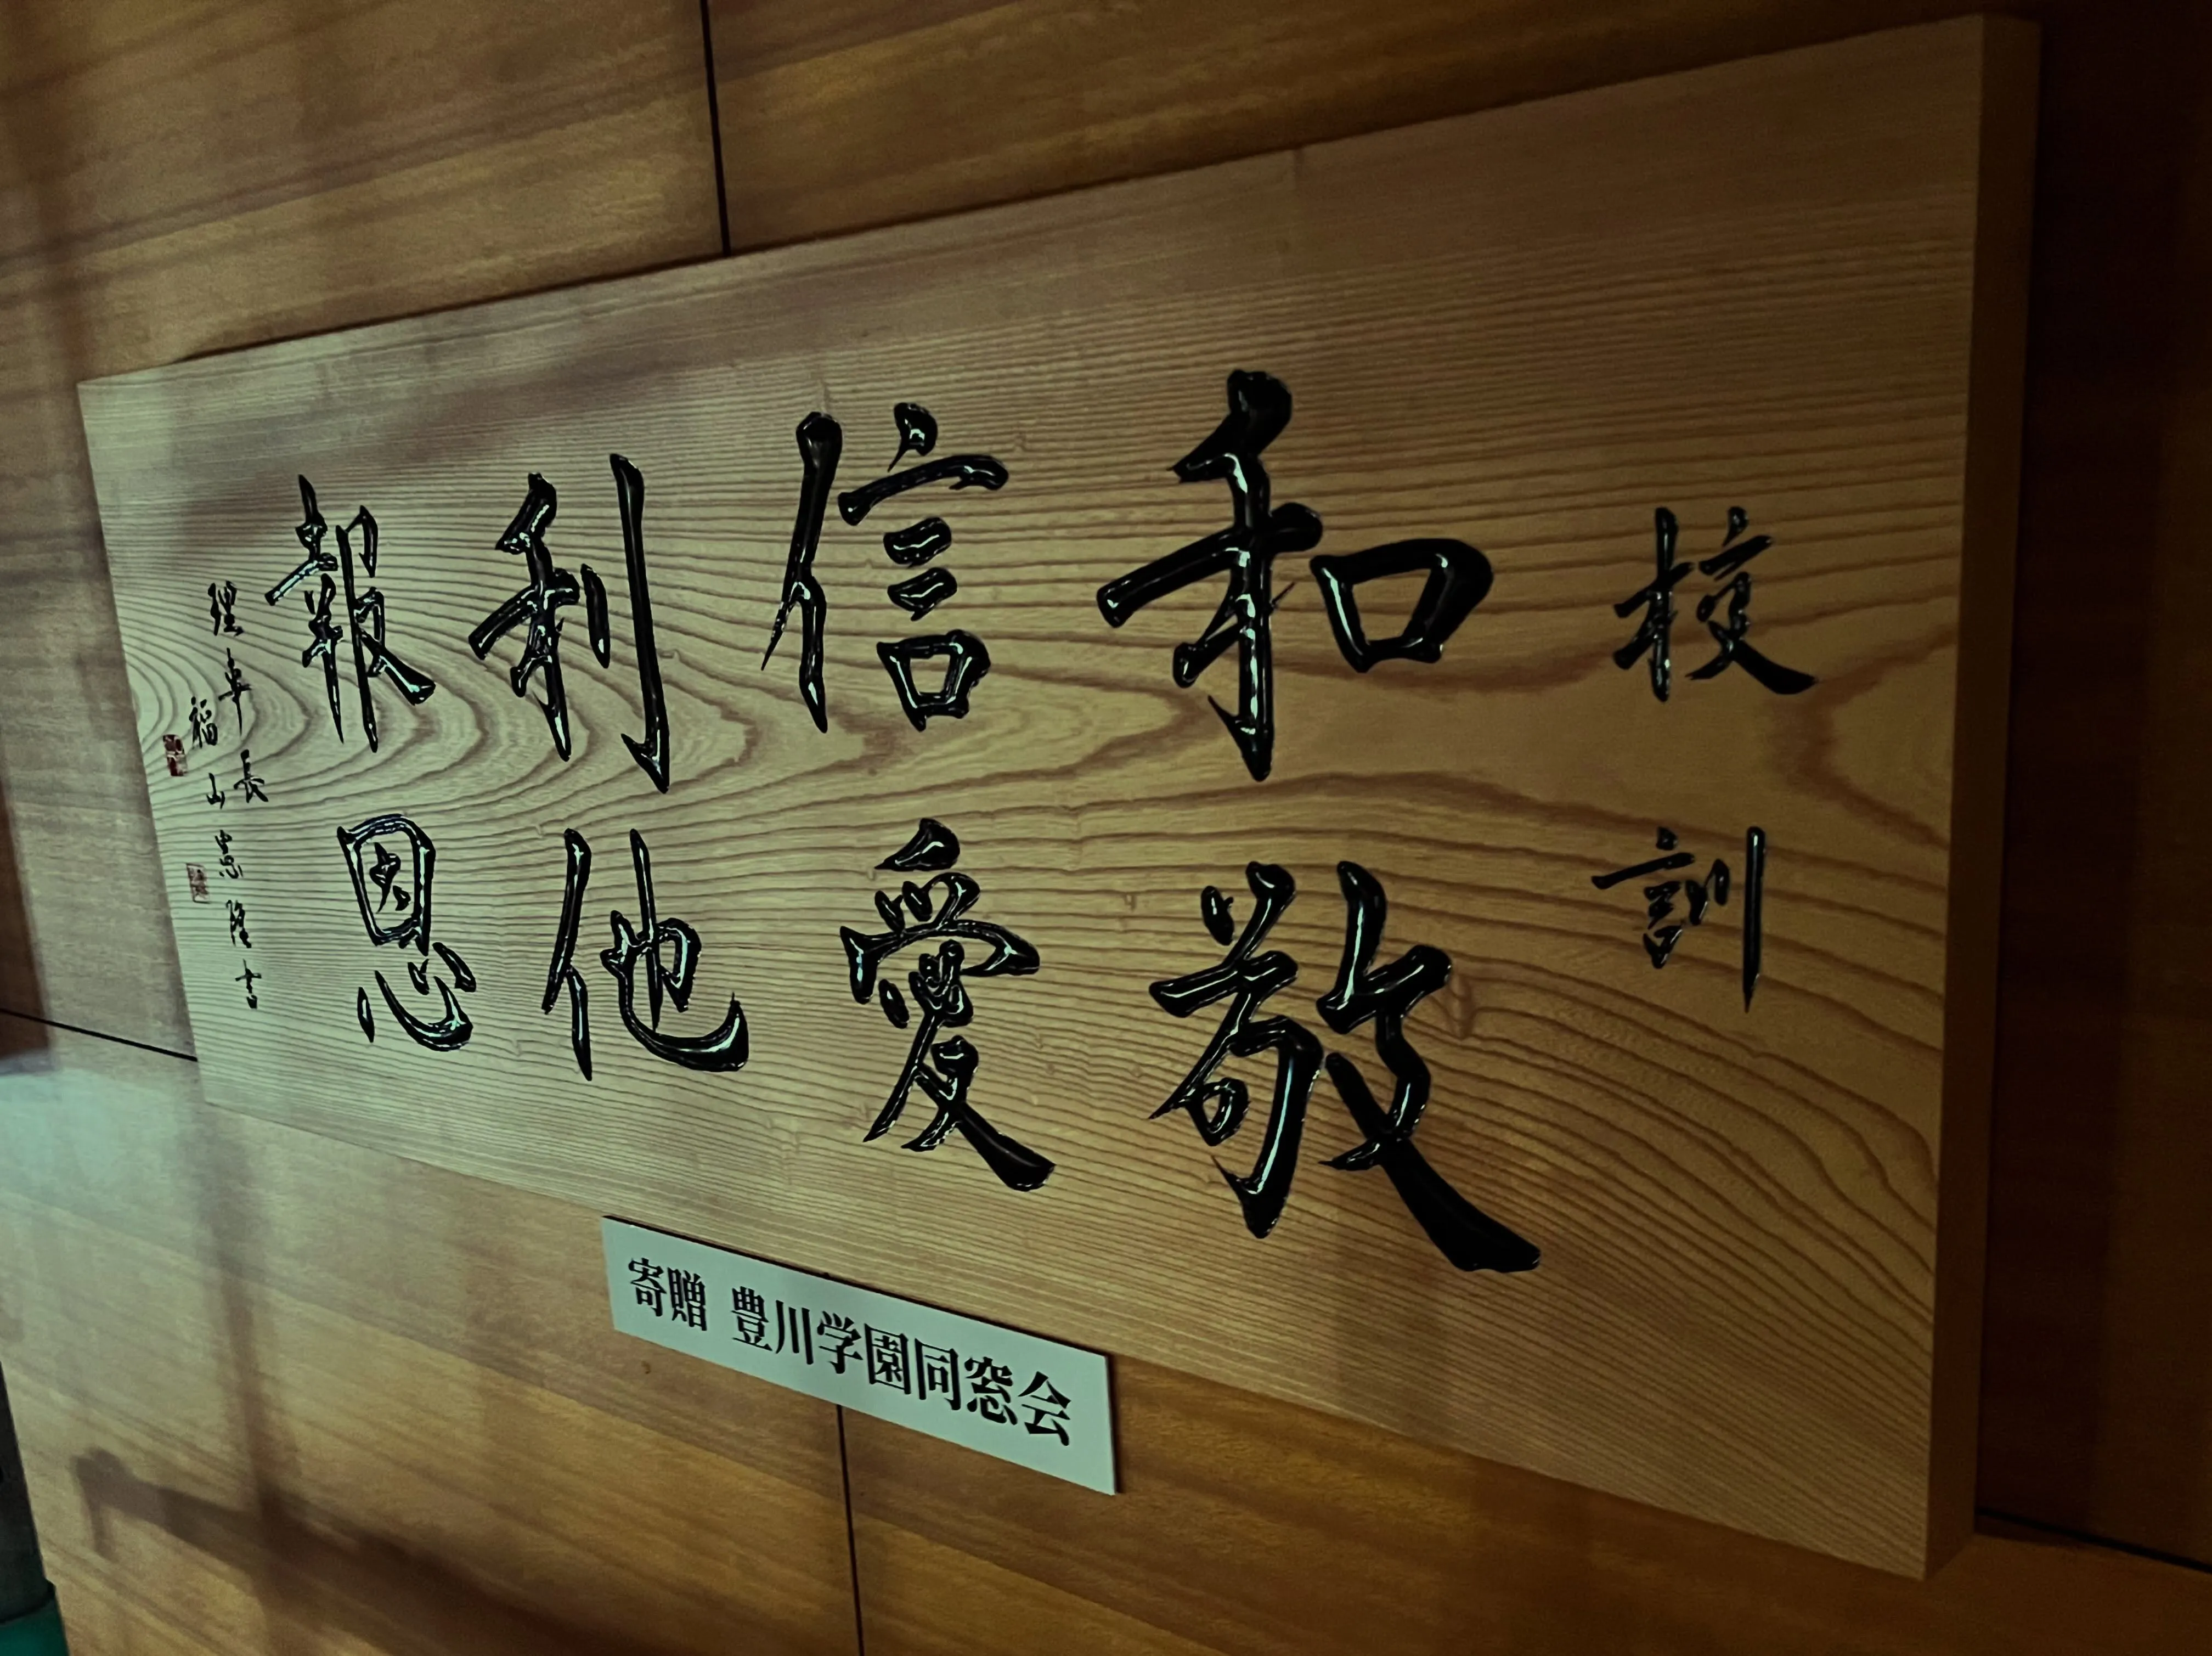 校訓
和敬
信愛
利他
報恩
理事長
福山憲隆書
寄贈 豊川学園同窓会